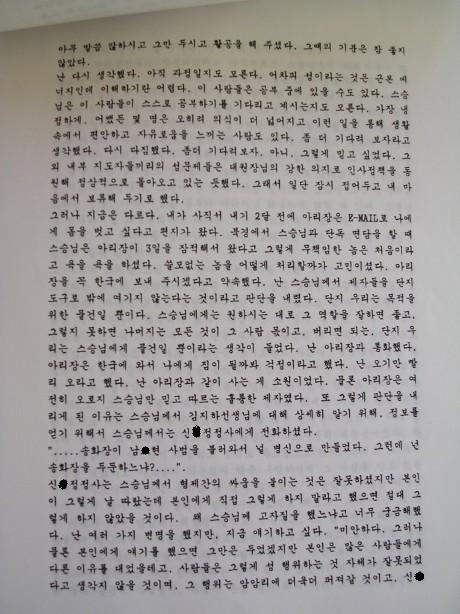 아무 말씀 않하시고 그만 두시고 활공을 해 주셨다. 그때의 기분은 참 좋지
않았다.
난 다시 생각했다. 아직 과정일지도 모른다. 어차피 섬이라는 것은 근본 에
너지인데 이해하기란 어렵다. 이 사람들은 공부 중에 있을 수도 있다. 스승
님은 이 사람들이 스스로 공부하기를 기다리고 계시는지도 모른다. 가장 냉
정하게, 어쨌든 몇 명은 오히려 의식이 더 넓어지고 이런 일을 통해 생활
속에서 편안하고 자유로움을 느끼는 사람도 있다. 좀 더 기다려 보자라고
생각했다. 다시 다짐했다. 좀더 기다려보자. 아니, 그렇게 믿고 싶었다. 그
외 내부 지도자들끼리의 섬문제들은 대원장님의 강한 의지로 인사정책을 동
원해 정상적으로 돌아오고 있는 듯했다. 그래서 일단 잠시 접어두고 내 마
음에서 보류해 두기로 했다.
그러나 지금은 다르다. 내가 사직서 내기 2달 전에 아리장은 E-MAIL로 나에
게 몸을 벗고 싶다고 편지가 왔다. 북경에서 스승님과 단독 면담을 할 때
스승님은 아리장이 3일을 잠적해서 왔다고 그렇게 무책임한 놈은 처음이라
고 욕을 욕을 하셨다. 쓸모없는 놈을 어떻게 처리할까가 고민이셨다. 아리
장을 꼭 한국에 보내 주시겠다고 약속했다. 난 스승님께서 제자들을 단지
도구로 밖에 여기지 않는다는 것이라고 판단을 내렸다. 단지 우리는 목적을
위한 물건일 뿐이다. 스승님에게는 원하시는 대로 그 역할을 잘하면 좋고,
그렇지 못하면 나머지는 모든 것이 그 사람 몫이고, 버리면 되는, 단지 우
리는 스승님에게 물건일 뿐이라는 생각이 들었다. 난 아리장과 통화했다.
아리장은 한국에 와서 나에게 짐이 될까봐 걱정이라고 했다. 난 오기만 빨
리 오라고 했다. 난 아리장과 같이 사는 게 소원이었다. 물론 아리장은 여
전히 오로지 스승님만 믿고 따르는 훌륭한 제자였다. 또 그렇게 판단을 내
리게 된 이유는 스승님께서 김지하선생님에 대해 상세히 알기 위해, 정보를
얻기 위해서 스승님께서는 신 정정사에게 전화하셨다.
".....송화장이 남 현 사범을 불러와서 널 병신으로 만들었다. 그런데 넌
송화장을 두둔하느냐?....".
신 정정사는 스승님께서 형제간의 싸움을 붙이는 것은 잘못하셨지만 본인
이 그렇게 날 따랐는데 본인에게 직접 그렇게 하지 말라고 했으면 절대 그
렇게 하지 않았을 것이다. 왜 스승님께 고자질을 했느냐고 너무 궁금해했
다. 난 여러 가지 변명을 했지만, 지금 얘기하고 싶다. "미안하다. 그러나
물론 본인에게 얘기를 했으면 그만은 두었겠지만 본인은 많은 사람들에게
다른 이유를 대었을테고, 사람들은 그렇게 섬 행위하는 것 자체가 잘못되었
다고 생각지 않을 것이며, 그 행위는 암암리에 더욱더 퍼져갈 것이고, 신